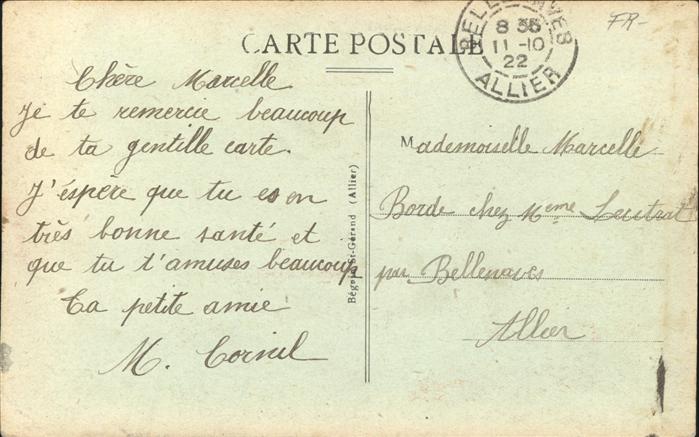 CARTE POSTALE
FR-
BELLENAVES
8 35
11 -10
22
ALLIER
Chère Marcelle
Je te remercie beaucoup
de ta gentille carte.
J'éspère que tu es en
très bonne santé et
que tu t'amuses beaucoup
Ta petite amie
M. Cornil
St-Gérand (Allier)
Mademoiselle Marcelle
Borde chez Mme
par Bellenaves
Allier